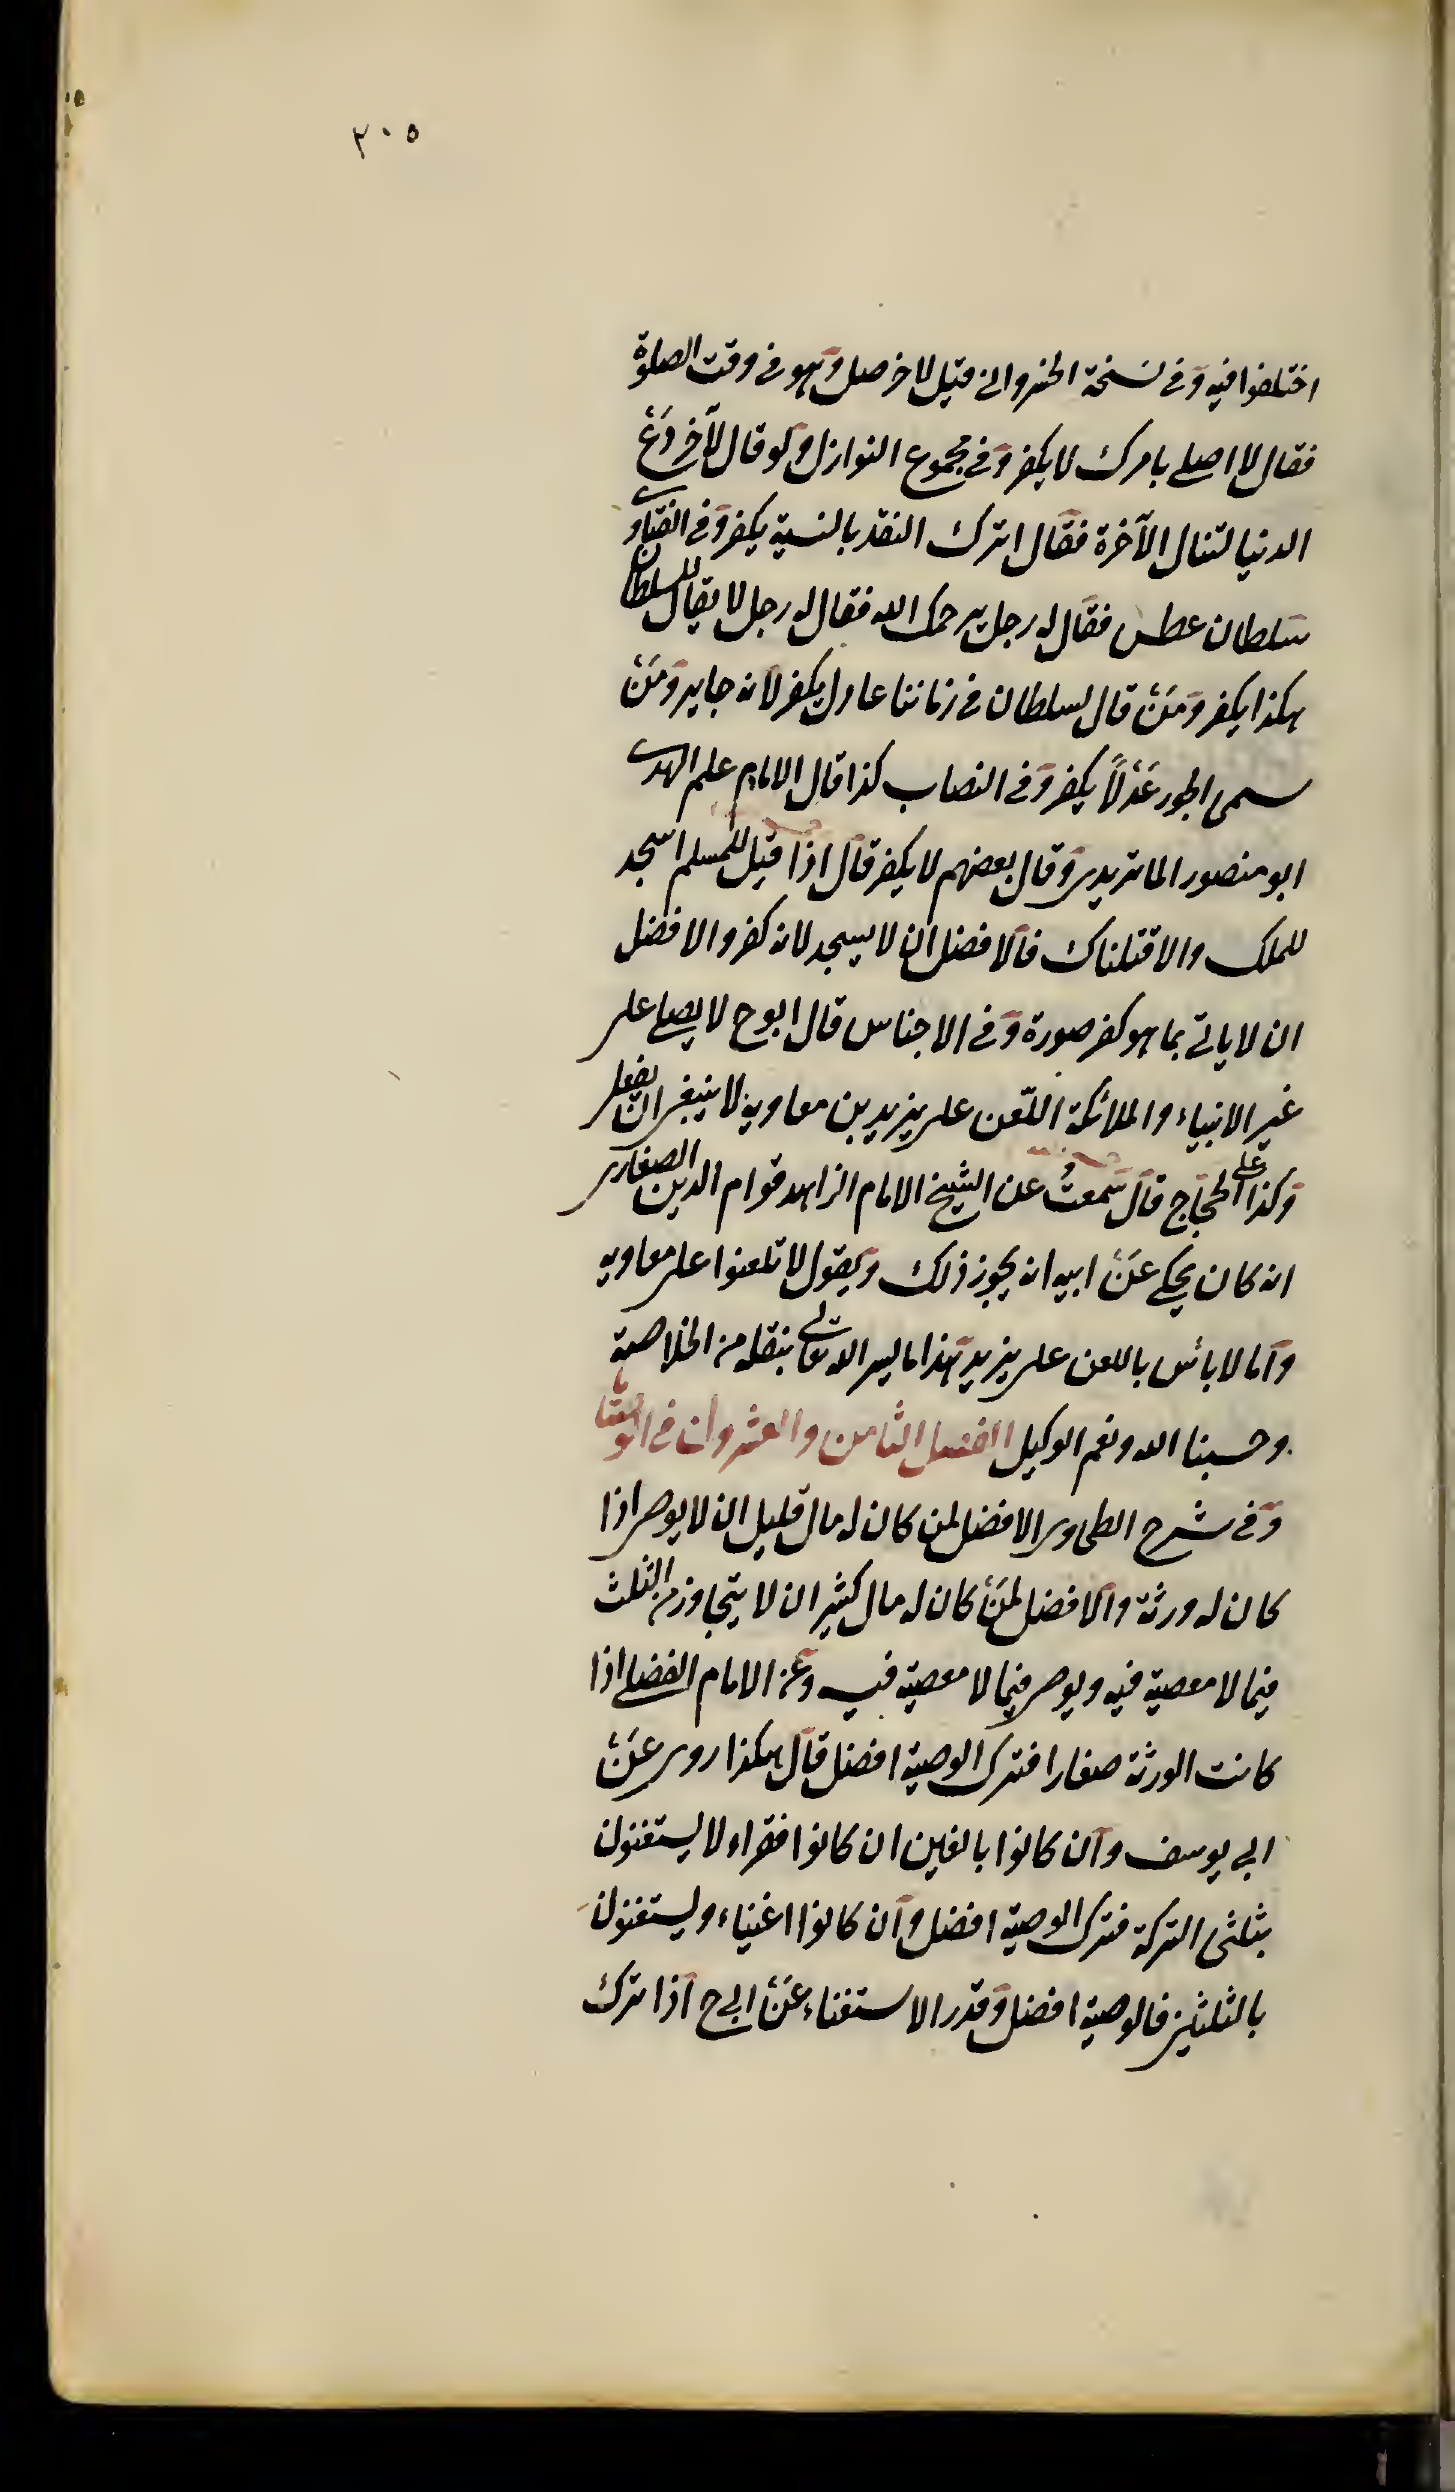 ٣٠٥
اختلفوا فيه وفى نسخة الخسروانى قيل لآخر صل وهو فى وقت الصلوة
فقال لا اصلى بامرك لا يكفر وفى مجموع النوازل ولو قال لآخر دع
الدنيا لتنال الآخرة فقال اترك النقد بالنسية يكفر وفى الفتاوى
سلطان عطس فقال له رجل يرحمك الله فقال له رجل لا يقال للسلطان
هكذا يكفر ومن قال لسلطان فى زماننا عادل يكفر لانه جاير ومن
سمى الجور عدلاً يكفر وفى النصاب كذا قال الامام علم الهدى
ابو منصور الماتريدى وقال بعضهم لا يكفر قال اذا قيل للمسلم اسجد
للملك والا قتلناك فالافضل ان لا يسجد لانه كفر والافضل
ان لا ياتى بما هو كفر صورة وفى الاجناس قال ابو ح لا يصلى على
غير الانبياء والملائكة اللعن على يزيد بن معاويه لا ينبغى ان يفعل
وكذا على الحجاج قال سمعت عن الشيخ الامام الزاهد قوام الدين الصفارى
انه كان يحكى عن ابيه انه يجوز ذلك ويقول لا تلعنوا على معاويه
واما لا بأس باللعن على يزيد هذا ما يسر الله تعالى بنقله من الخلاصة
وحسبنا الله ونعم الوكيل الفصل الثامن والعشرون فى الوصايا
وفى شرح الطحاوى الافضل لمن كان له مال قليل ان لا يوصى اذا
كان له ورثة والافضل لمن كان له مال كثير ان لا يتجاوز من الثلث
فيما لا معصية فيه ويوصى فيما لا معصية فيه وعن الامام الفضلى اذا
كانت الورثة صغارا فترك الوصية افضل قال هكذا روى عن
ابى يوسف وان كانوا بالغين ان كانوا فقراء لا يستغنون
بثلثى التركة فترك الوصية افضل وان كانوا اغنياء ويستغنون
بالثلثين فالوصية افضل وقدر الاستغناء عن ابى ح اذا ترك